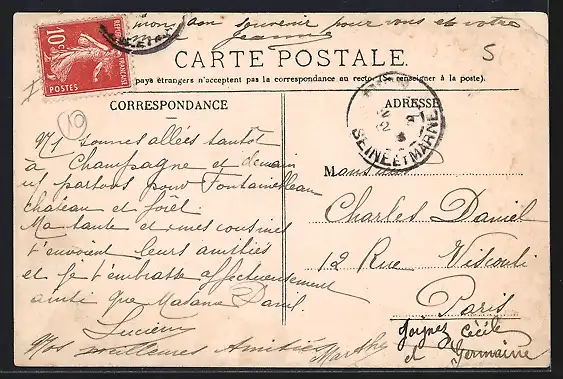 mon bon souvenir pour vous et votre
Jeanne
CARTE POSTALE.
pays étrangers n'acceptent pas la correspondance au recto. (Se renseigner à la poste).
RÉPUBLIQUE FRANÇAISE
10c
POSTES
5
10
CORRESPONDANCE
ADRESSE
SEINE ET MARNE
Ns sommes allées tantôt
à Champagne et demain
ns partons pour Fontainebleau
château et forêt.
Ma tante et mes cousines
t'envoient leurs amitiés
et je t'embrasse affectueusement
ainsi que Madame Daniel.
Lucienne
Nos meilleures Amitiés Marthe
Monsieur
Charles Daniel
12 Rue Visconti
Paris
Joignez Cécile
et Germaine